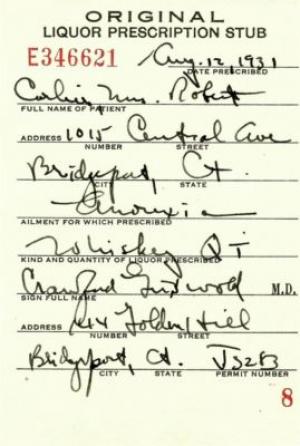 ORIGINAL
LIQUOR PRESCRIPTION STUB
E346621 Aug. 12, 1931
DATE PRESCRIBED
Mrs. Robert
FULL NAME OF PATIENT
ADDRESS 1015 Central Ave
NUMBER STREET
Bridgeport, Ct.
CITY STATE
Anorexia
AILMENT FOR WHICH PRESCRIBED
Whiskey QT
KIND AND QUANTITY OF LIQUOR PRESCRIBED
Crawford Griswold M.D.
SIGN FULL NAME
ADDRESS Golden Hill
NUMBER STREET
Bridgeport, Ct.
CITY STATE PERMIT NUMBER
8